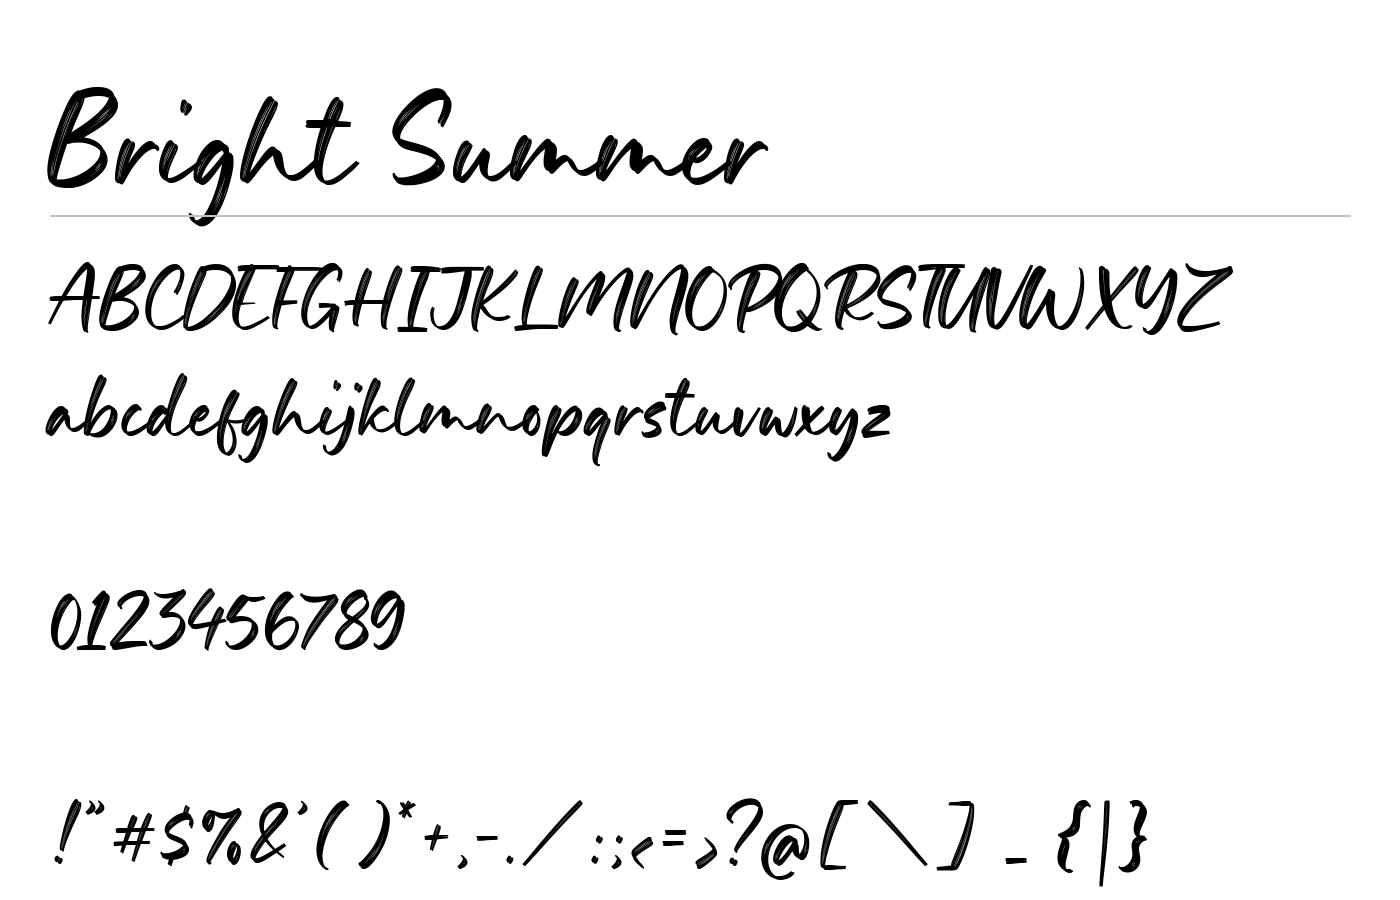 Bright Summer
ABCDEFGHIJKLMNOPQRSTUVWXYZ
abcdefghijklmnopqrstuvwxyz
0123456789
!"#$%&'()*+,-./:;<=>?@[\]_{|}